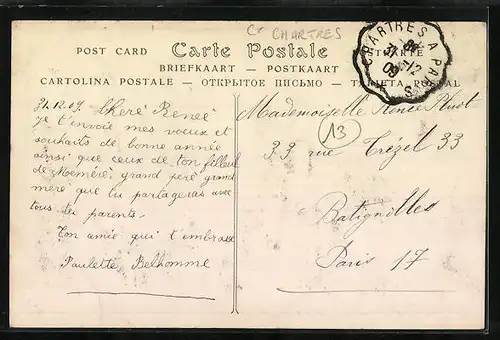 Ct CHARTRES
POST CARD Carte Postale
BRIEFKAART — POSTKAART
CARTOLINA POSTALE — ОТКРЫТОЕ ПИСЬМО — TARJETA POSTAL
CHARTRES A PARIS
31-12
09
31.12.09. Chère Renée
je t'envoie mes voeux et
souhaits de bonne année
ainsi que ceux de ton filleul
de Mémère, grand père grand
mère que tu partageras avec
tous tes parents.
Ton amie qui t'embrasse
Paulette Belhomme
Mademoiselle Renée
13
33 rue Trézel 33
Batignolles
Paris 17